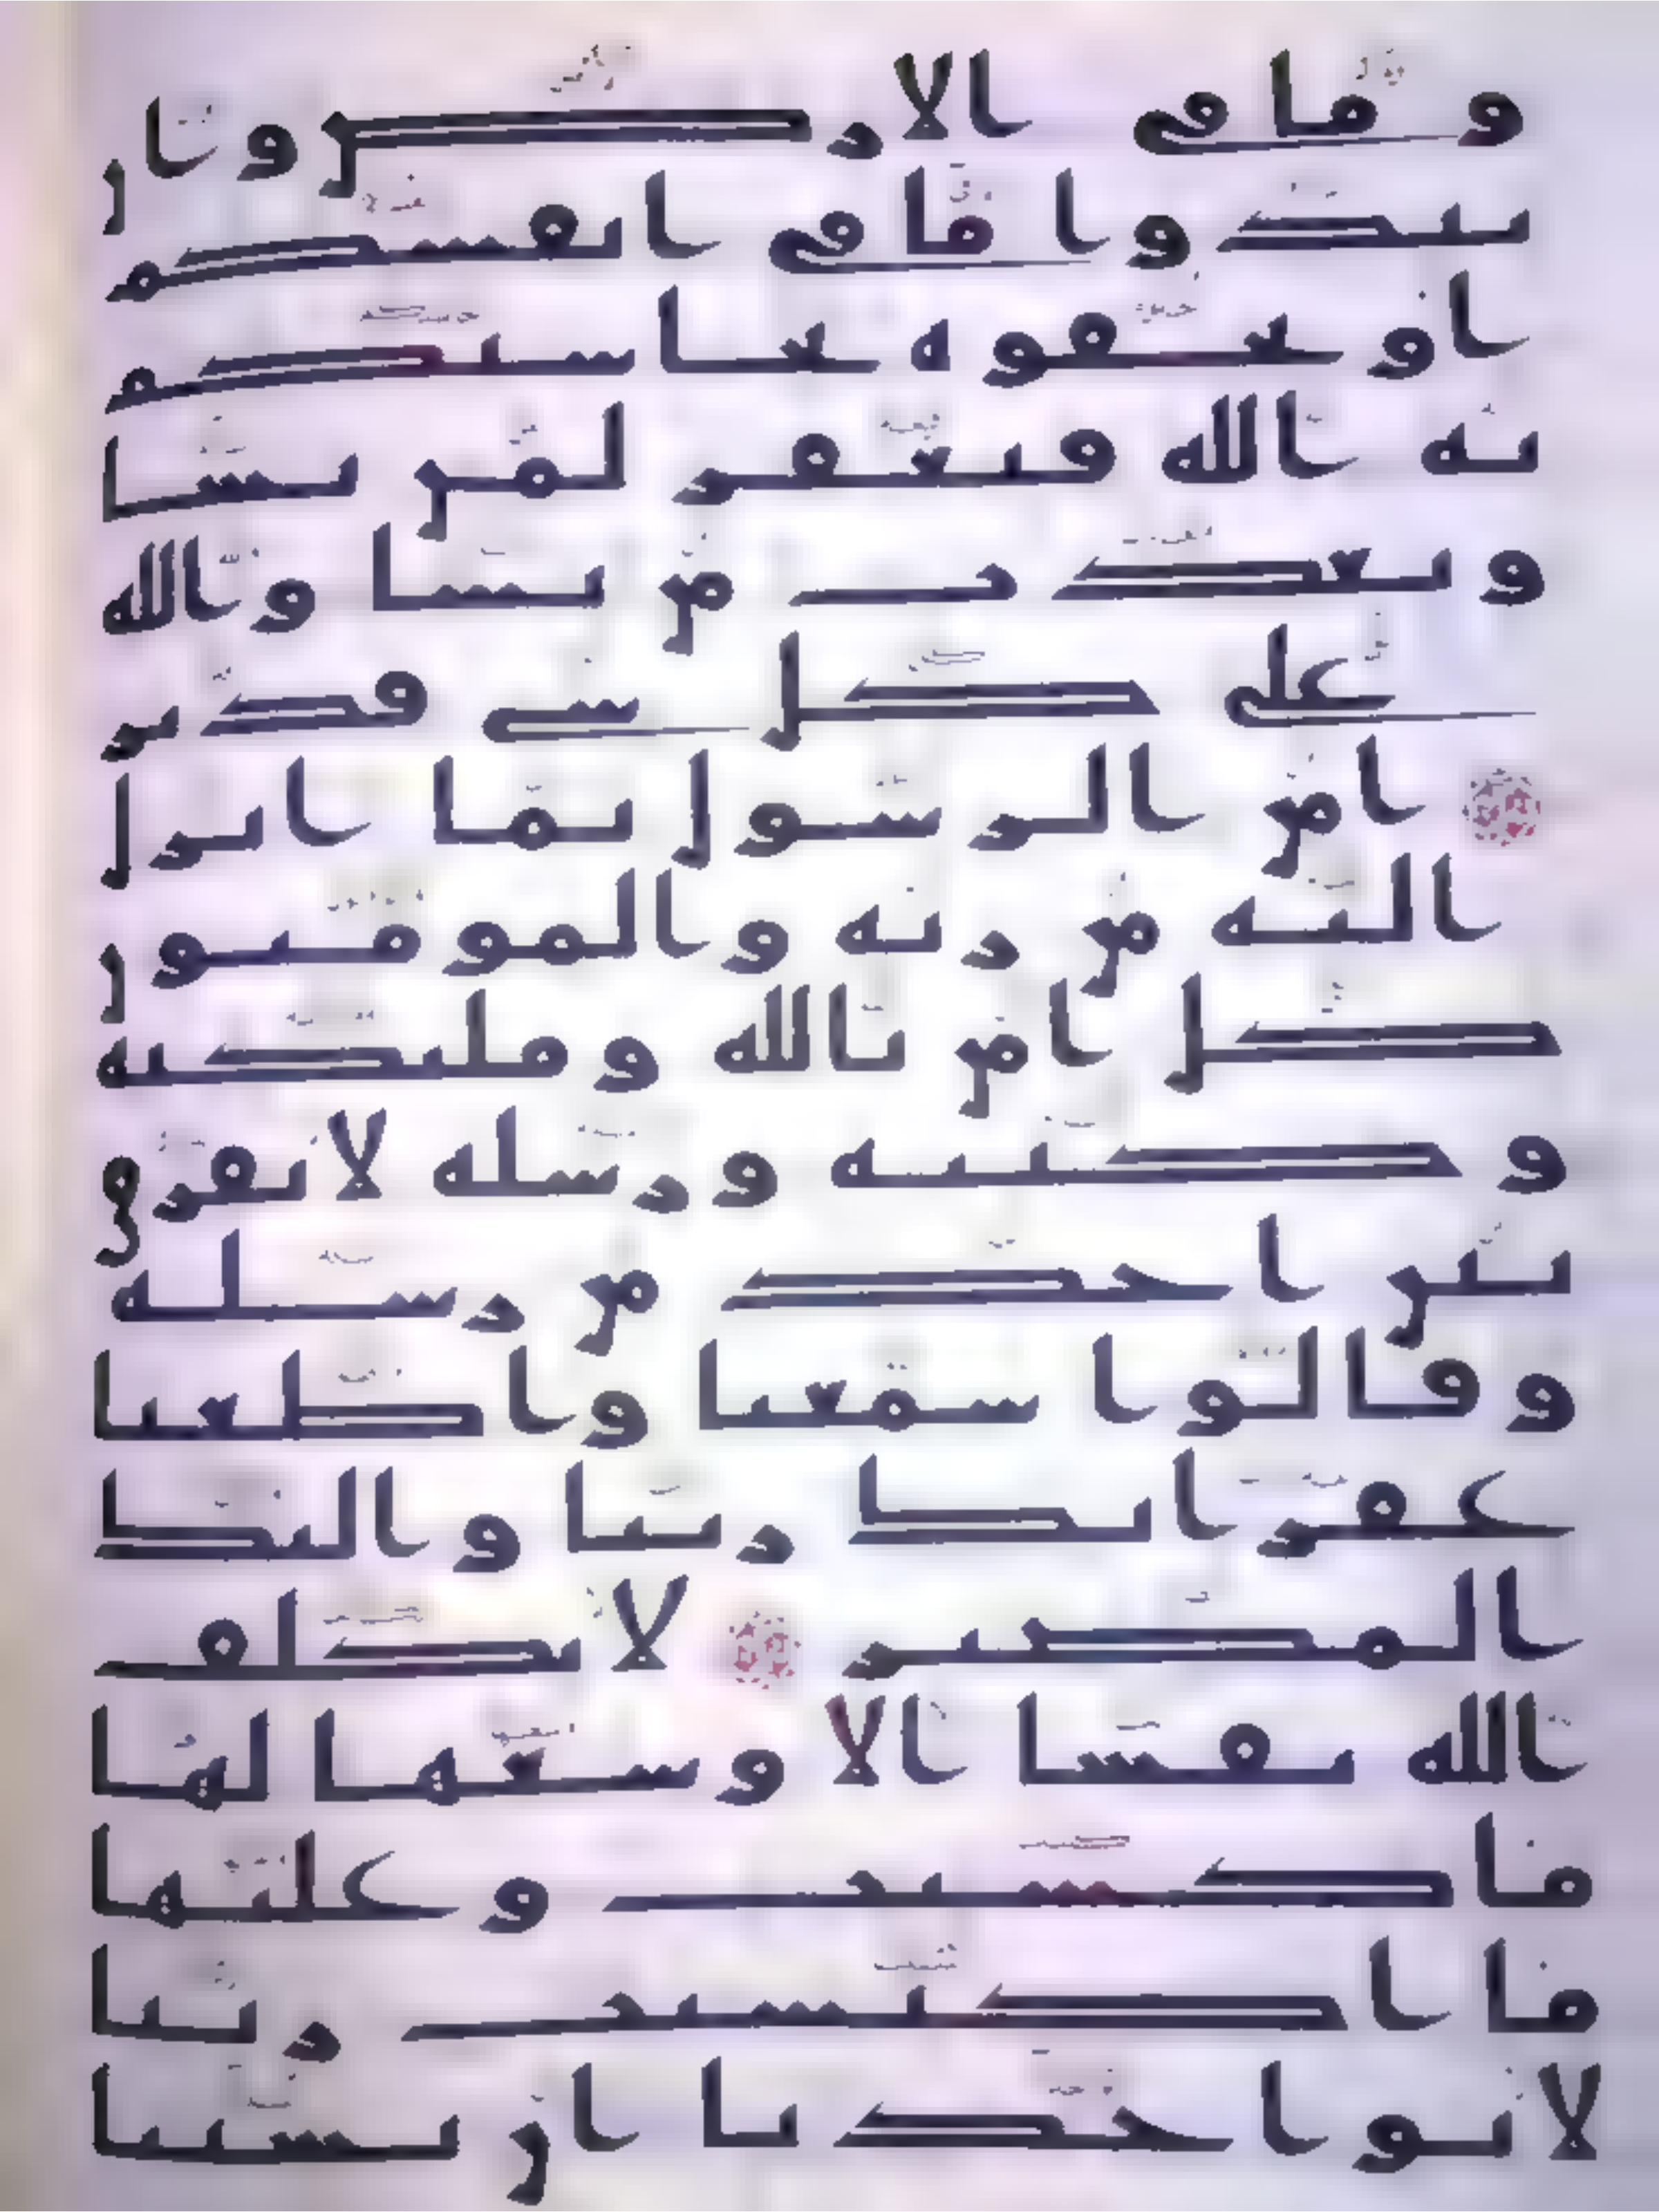 وما في الارض وان
تبدوا ما في انفسكم
او تخفوه يحاسبكم
به الله فيغفر لمن يشا
ويعذب من يشا والله
على كل شي قدير
امن الرسول بما انزل
اليه من ربه والمومنون
كل امن بالله وملىكته
وكتبه ورسله لا نفرق
بين احد من رسله
وقالوا سمعنا واطعنا
غفرانك ربنا واليك
المصير لا يكلف
الله نفسا الا وسعها لها
ما كسبت وعليها
ما اكتسبت ربنا
لا تواخذنا ان نسينا